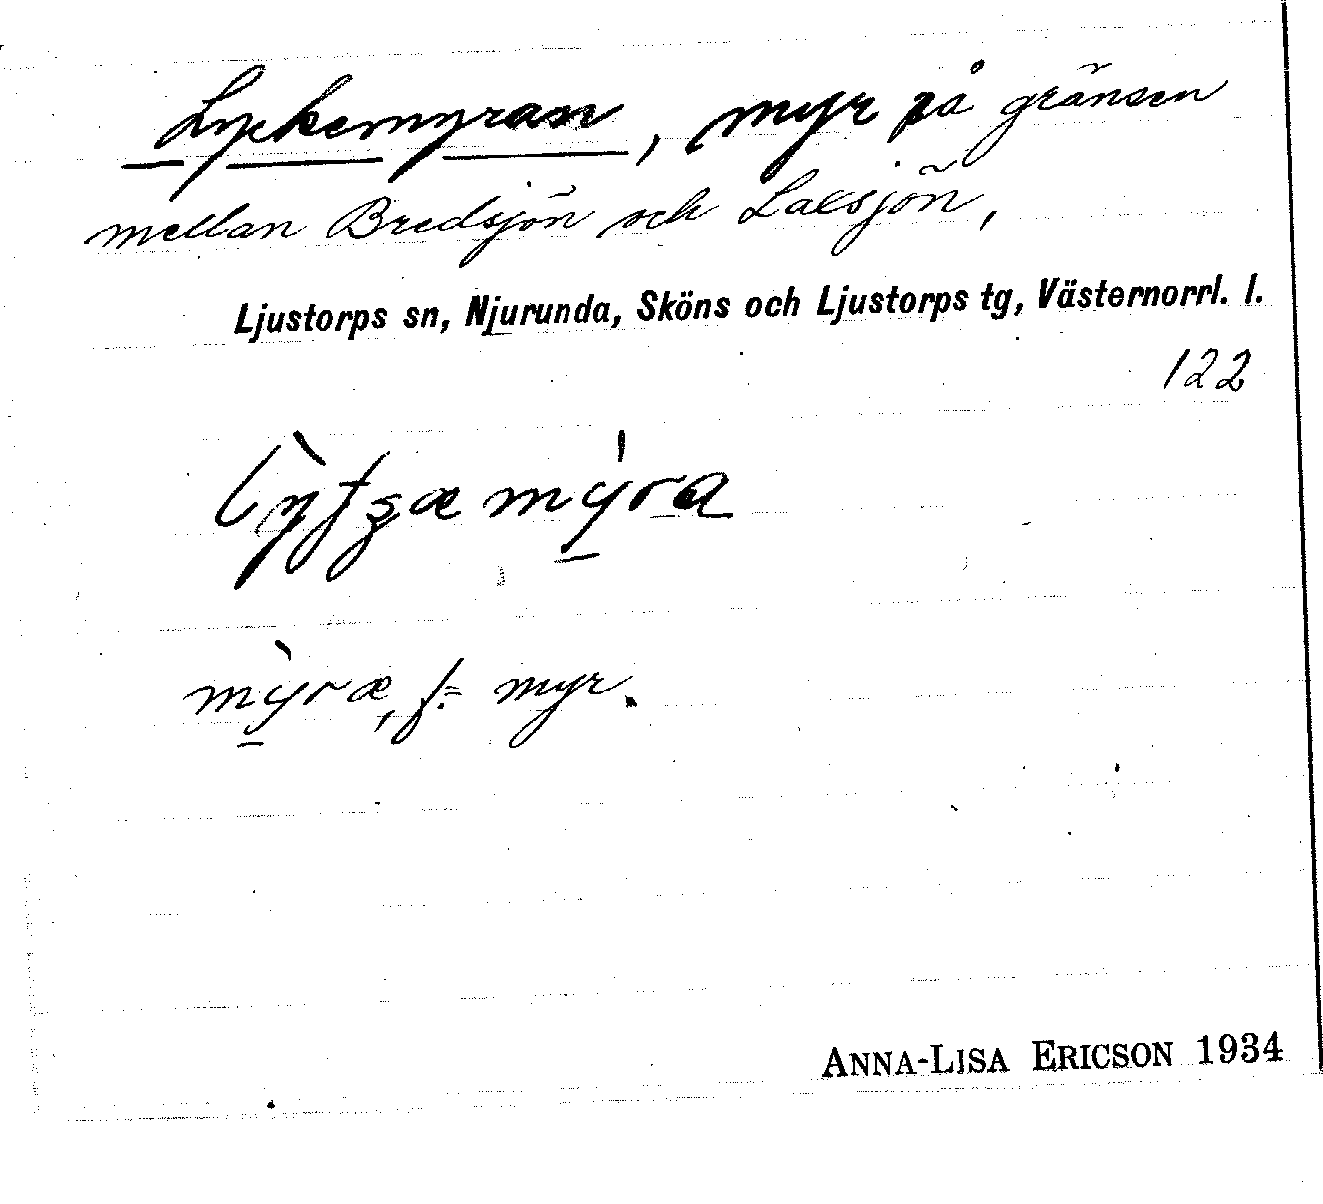 Lyckemyran, myr på gränsen
mellan Bredsjön och Laxsjön,
Ljustorps sn, Njurunda, Sköns och Ljustorps tg, Västernorrl. l.
122
mỳræ, f. = myr.
ANNA-LISA ERICSON 1934